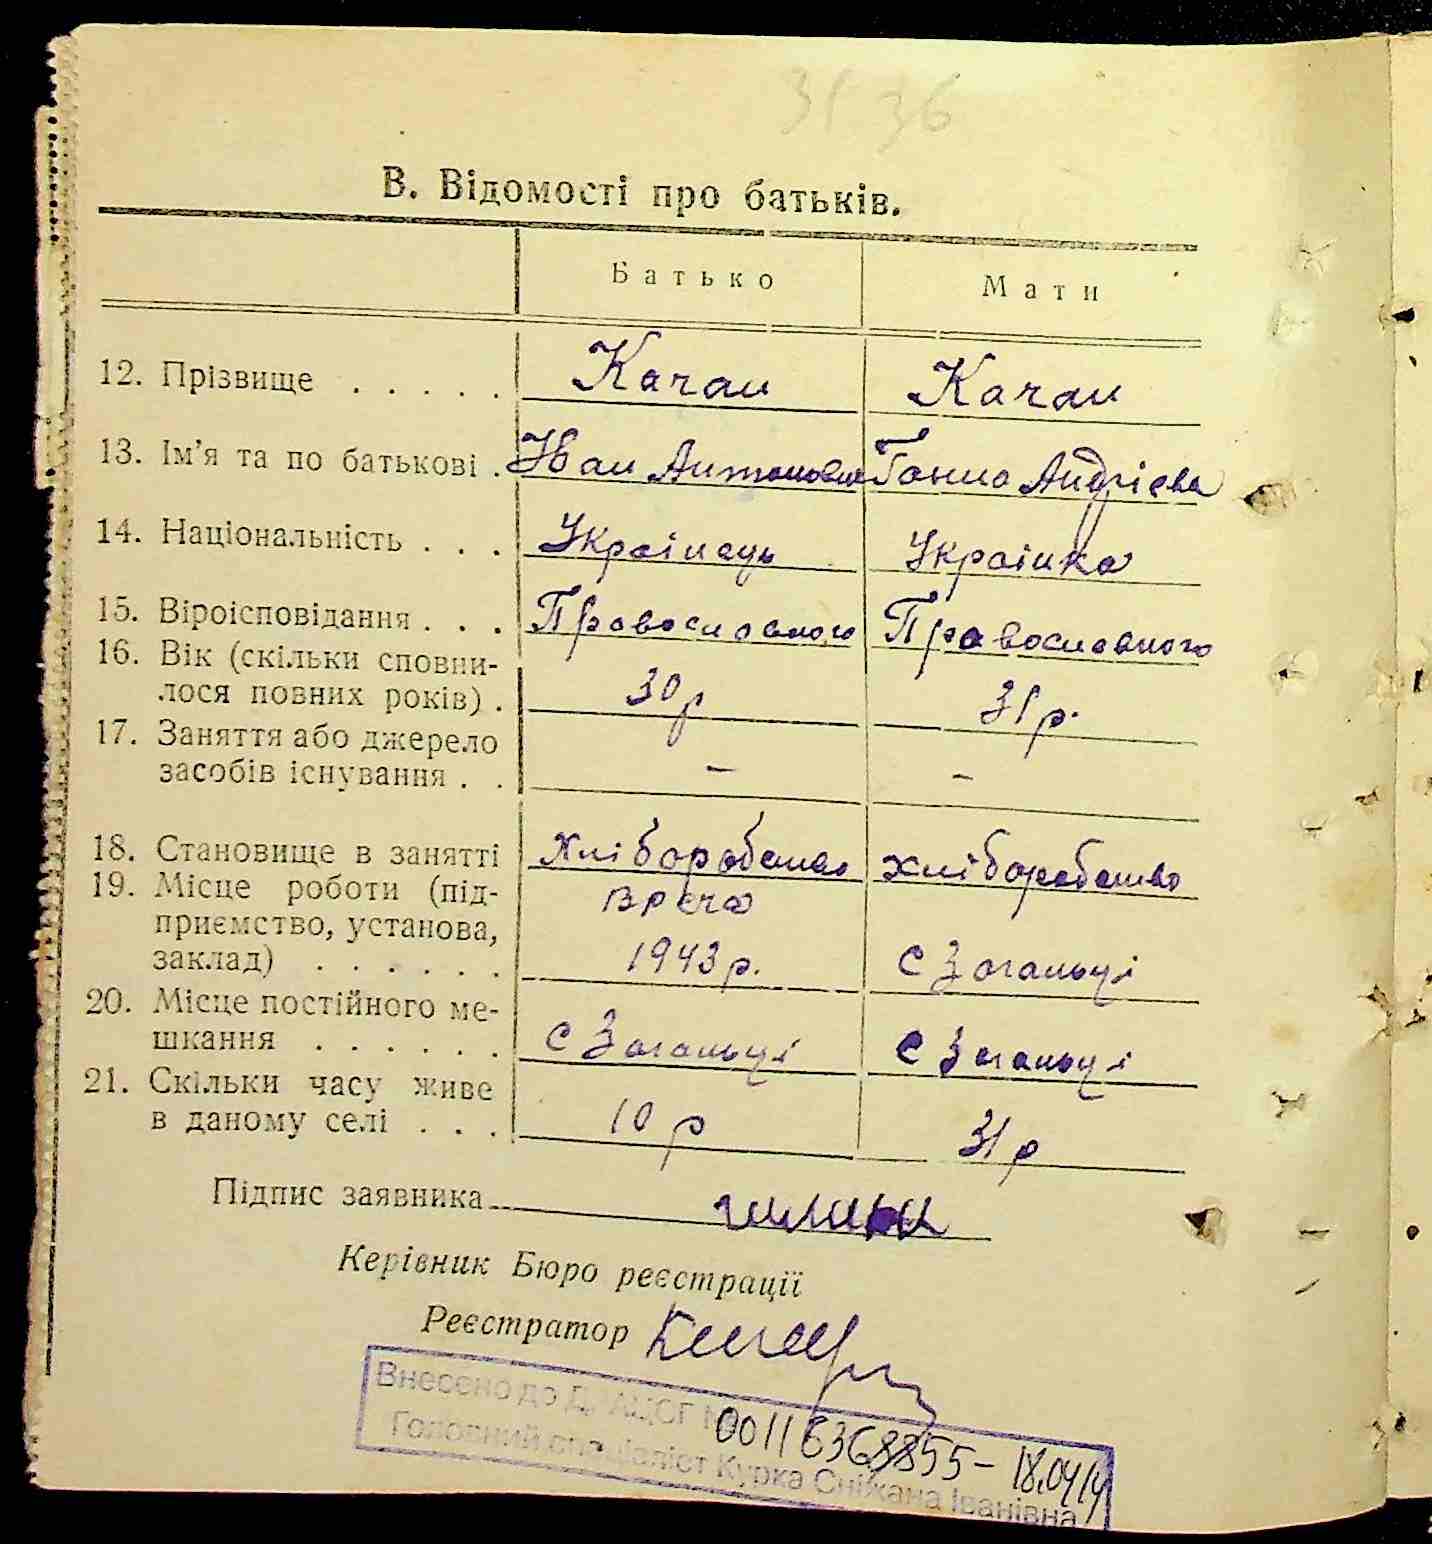 31 36
В. Відомості про батьків.
Батько Мати
12. Прізвище . . . . . Качан Качан
13. Ім'я та по батькові . Іван Антонович Ганна Андрієва
14. Національність . . . Українець Українка
15. Віроісповідання . . . Православного Православного
16. Вік (скільки сповни-
лося повних років) . 30 р 31 р.
17. Заняття або джерело
засобів існування . . – –
18. Становище в занятті Хліборобство хліборобство
19. Місце роботи (під-
приємство, установа,
заклад) . . . . . . 1943 р. с Загальці
20. Місце постійного ме-
шкання . . . . . . с Загальці с Загальці
21. Скільки часу живе
в даному селі . . . 10 р 31 р
Підпис заявника
Керівник Бюро реєстрації
Реєстратор
Внесено до ДРАЦСГ № 00116368855 – 18.04.14
Головний спеціаліст Курка Сніжана Іванівна